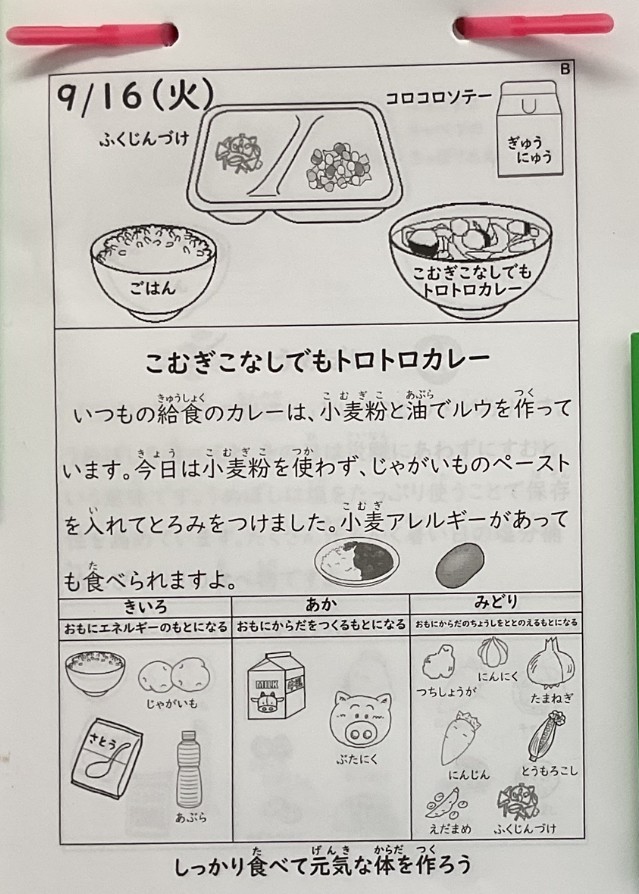 B
9/16(火)
コロコロソテー
ふくじんづけ
ぎゅう
にゅう
ごはん
こむぎこなしでも
トロトロカレー
こむぎこなしでもトロトロカレー
いつもの給食のカレーは、小麦粉と油でルウを作って
います。今日は小麦粉を使わず、じゃがいものペースト
を入れてとろみをつけました。小麦アレルギーがあって
も食べられますよ。
きいろ
あか
みどり
おもにエネルギーのもとになる
おもにからだをつくるもとになる
おもにからだのちょうしをととのえるもとになる
じゃがいも
さとう
あぶら
MILK
ぶたにく
つちしょうが
にんにく
たまねぎ
にんじん
とうもろこし
えだまめ
ふくじんづけ
しっかり食べて元気な体を作ろう